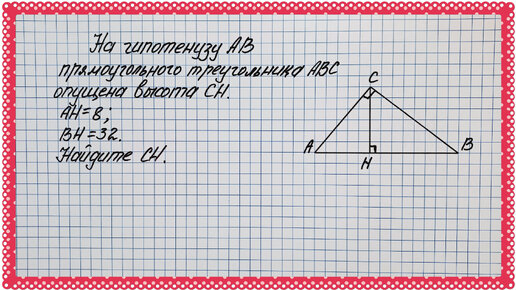 На гипотенузу АВ
прямоугольного треугольника АВС
опущена высота СН.
АН=8;
ВН=32.
Найдите СН.
С
А
В
Н